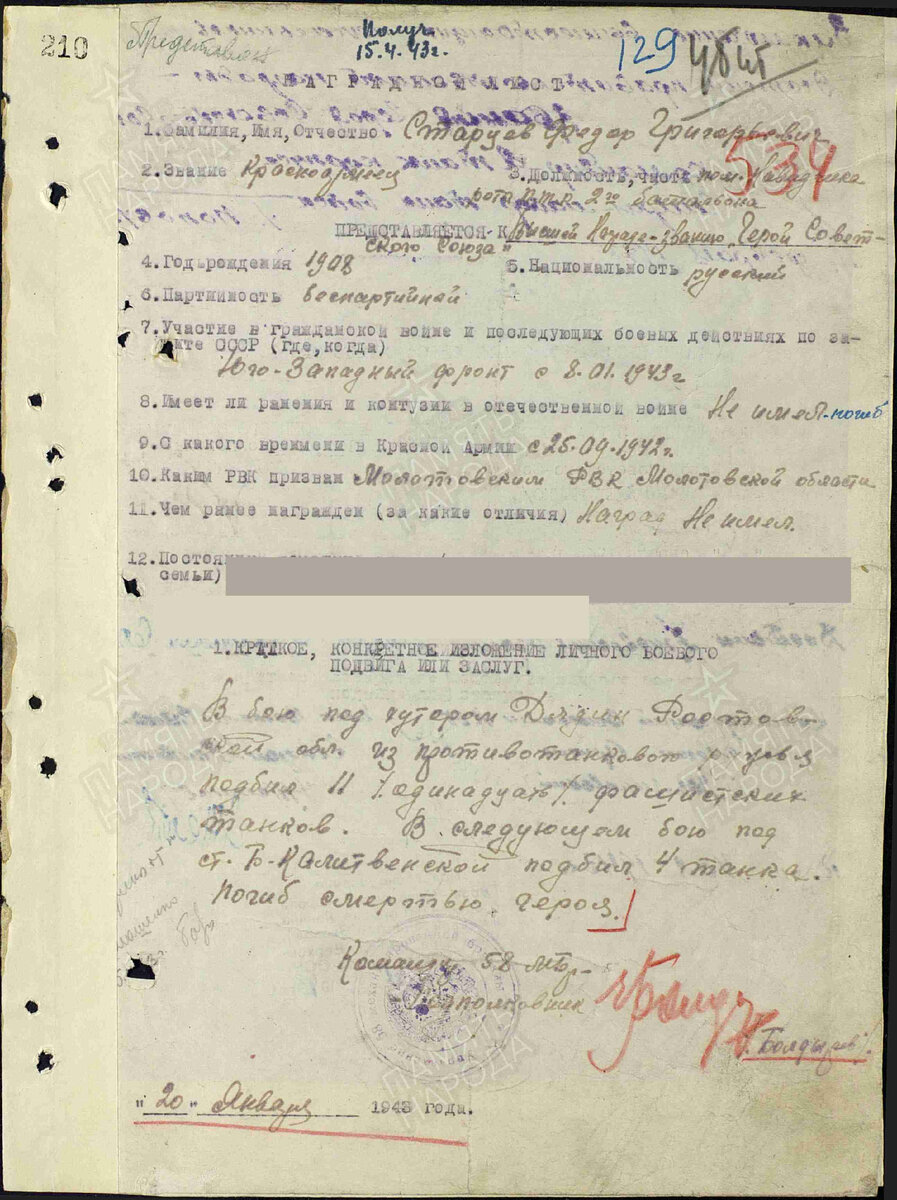 210
Получ.
15.4.43г.
129
убит
НАГРАДНОЙ ЛИСТ
1.Фамилия,Имя,Отчество Старцев Федор Григорьевич
534
2.Звание Красноармеец 3.Должность,часть пом. Наводчика
роты П.Т.Р. 2го батальона
ПРЕДСТАВЛЯЕТСЯ К Высшей Награде-званию „Герой Совет-
ского Союза"
4.Год рождения 1908 5.Национальность русский
6.Партийность беспартийный
7.Участие в гражданской войне и последующих боевых действиях по за-
щите СССР (где,когда)
Юго-Западный фронт с 8.01.1943г
8.Имеет ли ранения и контузии в отечественной войне Не имел-погиб
9.С какого времени в Красной Армии с 25.09.1942г.
10.Каким РВК призван Молотовским РВК Молотовской области
11.Чем ранее награжден (за какие отличия) Наград Не имел.
12.
семьи)
1.КРАТКОЕ, КОНКРЕТНОЕ ИЗЛОЖЕНИЕ ЛИЧНОГО БОЕВОГО
ПОДВИГА ИЛИ ЗАСЛУГ.
В бою под хутором Дядин Ростов-
ской обл. из противотанкового ружья
подбил 11 /одинадцать/ фашистских
танков. В следующем бою под
ст. Б-Калитвенской подбил 4 танка.
Погиб смертью героя.
Командир 58 мбр-
Подполковник
/Болдырев/.
"20" Января 1943 года.
ПАМЯТЬ НАРОДА